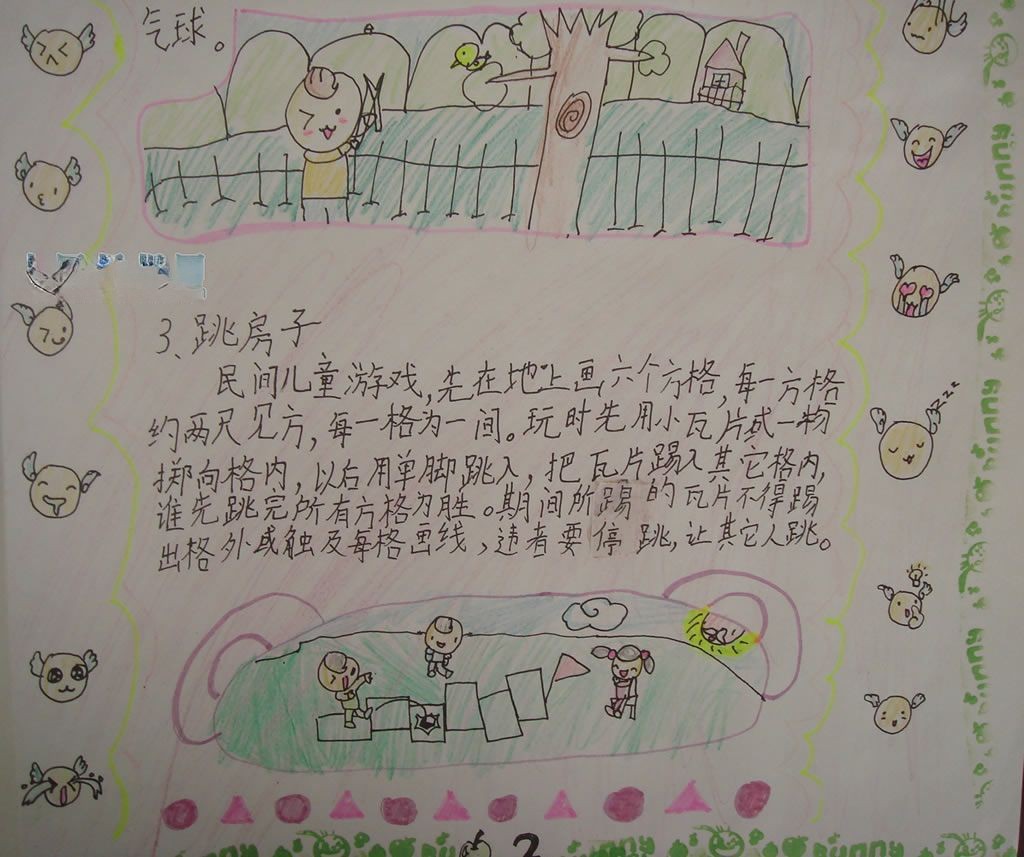 气球。
3、跳房子
民间儿童游戏，先在地上画六个方格，每一方格
约两尺见方，每一格为一间。玩时先用小瓦片或一物
掷向格内，以后用单脚跳入，把瓦片踢入其它格内，
谁先跳完所有方格为胜。期间所踢的瓦片不得踢
出格外或触及每格画线，违者要停跳，让其它人跳。
zzz
2